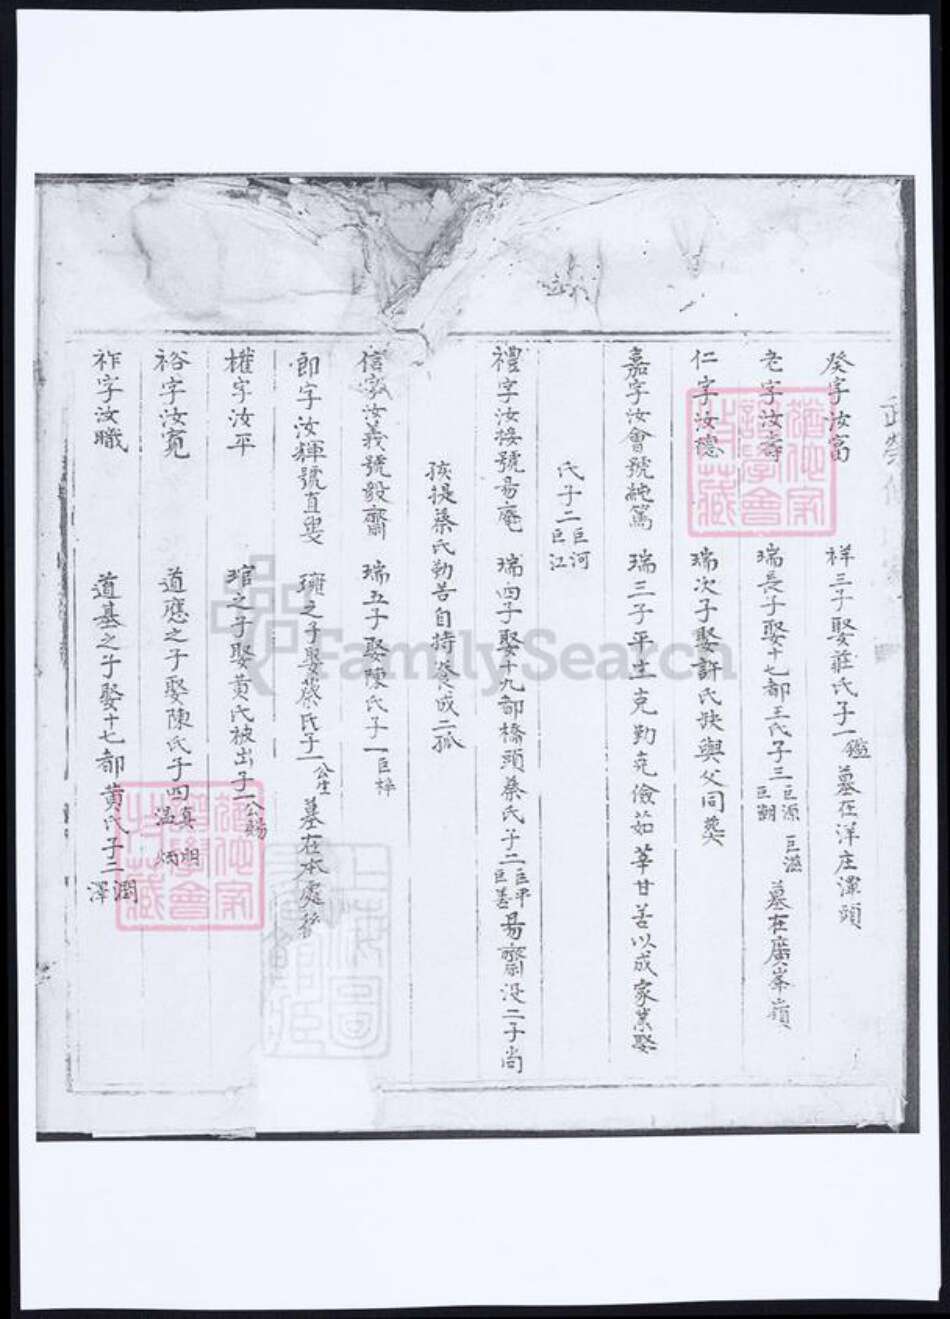 癸字汝富 祥三子娶莊氏子一鑑墓在洋庄潭頭
老字汝壽 瑞長子娶十七都王氏子三巨源巨朝巨濨墓在廣峯嶺
仁字汝德 瑞次子娶許氏挾與父同葬
嘉字汝會號純篤 瑞三子平生克勤克儉茹莘甘苦以成家業娶
氏子二巨河巨江
禮字汝接號易庵 瑞四子娶十九都橋頭蔡氏子二巨平巨善易齋没二子尚
孩提蔡氏勤苦自持養成二孤
信字汝義號毅齋 瑞五子娶陳氏子一巨梓
即字汝輝號直叟 瓊之子娶蔡氏子一公生墓在本處後
權字汝平 琯之子娶黄氏被出子一公賜
裕字汝寬 道應之子娶陳氏子四真溫炯
祚字汝職 道基之子娶十七都黄氏子三潤澤
FamilySearch